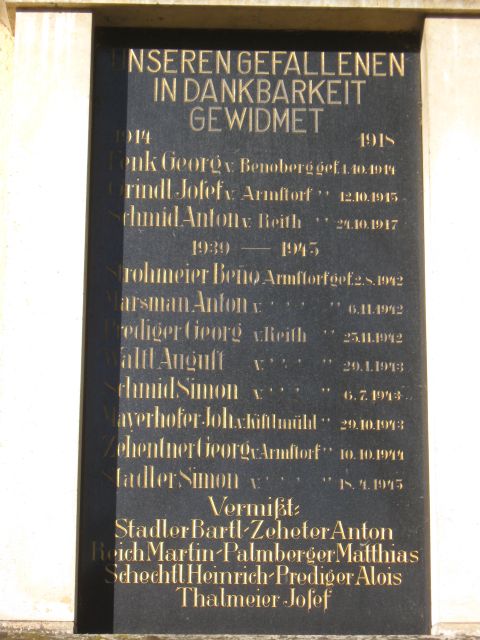 UNSEREN GEFALLENEN
IN DANKBARKEIT
GEWIDMET
1914 1918
Georg v. Benoberg gef. 1.10.1914
Grindl Josef v. Armstorf " 12.10.1915
Schmid Anton v. Reith " 24.10.1917
1939 — 1945
Strohmeier Beno v. Armstorf gef. 2.8.1942
Marsman Anton v. " " " 6.11.1942
Prediger Georg v. Reith " 25.11.1942
Waltl August v. " " " 29.1.1943
Schmid Simon v. " " " 6.7.1943
Mayerhofer Joh. v. Kiftlmühl " 29.10.1943
Zehentner Georg v. Armstorf " 10.10.1944
Stadler Simon v. " " " 18.4.1945
Vermißt:
Stadler Bartl-Zeheter Anton
Reich Martin-Palmberger Matthias
Schechtl Heinrich-Prediger Alois
Thalmeier Josef